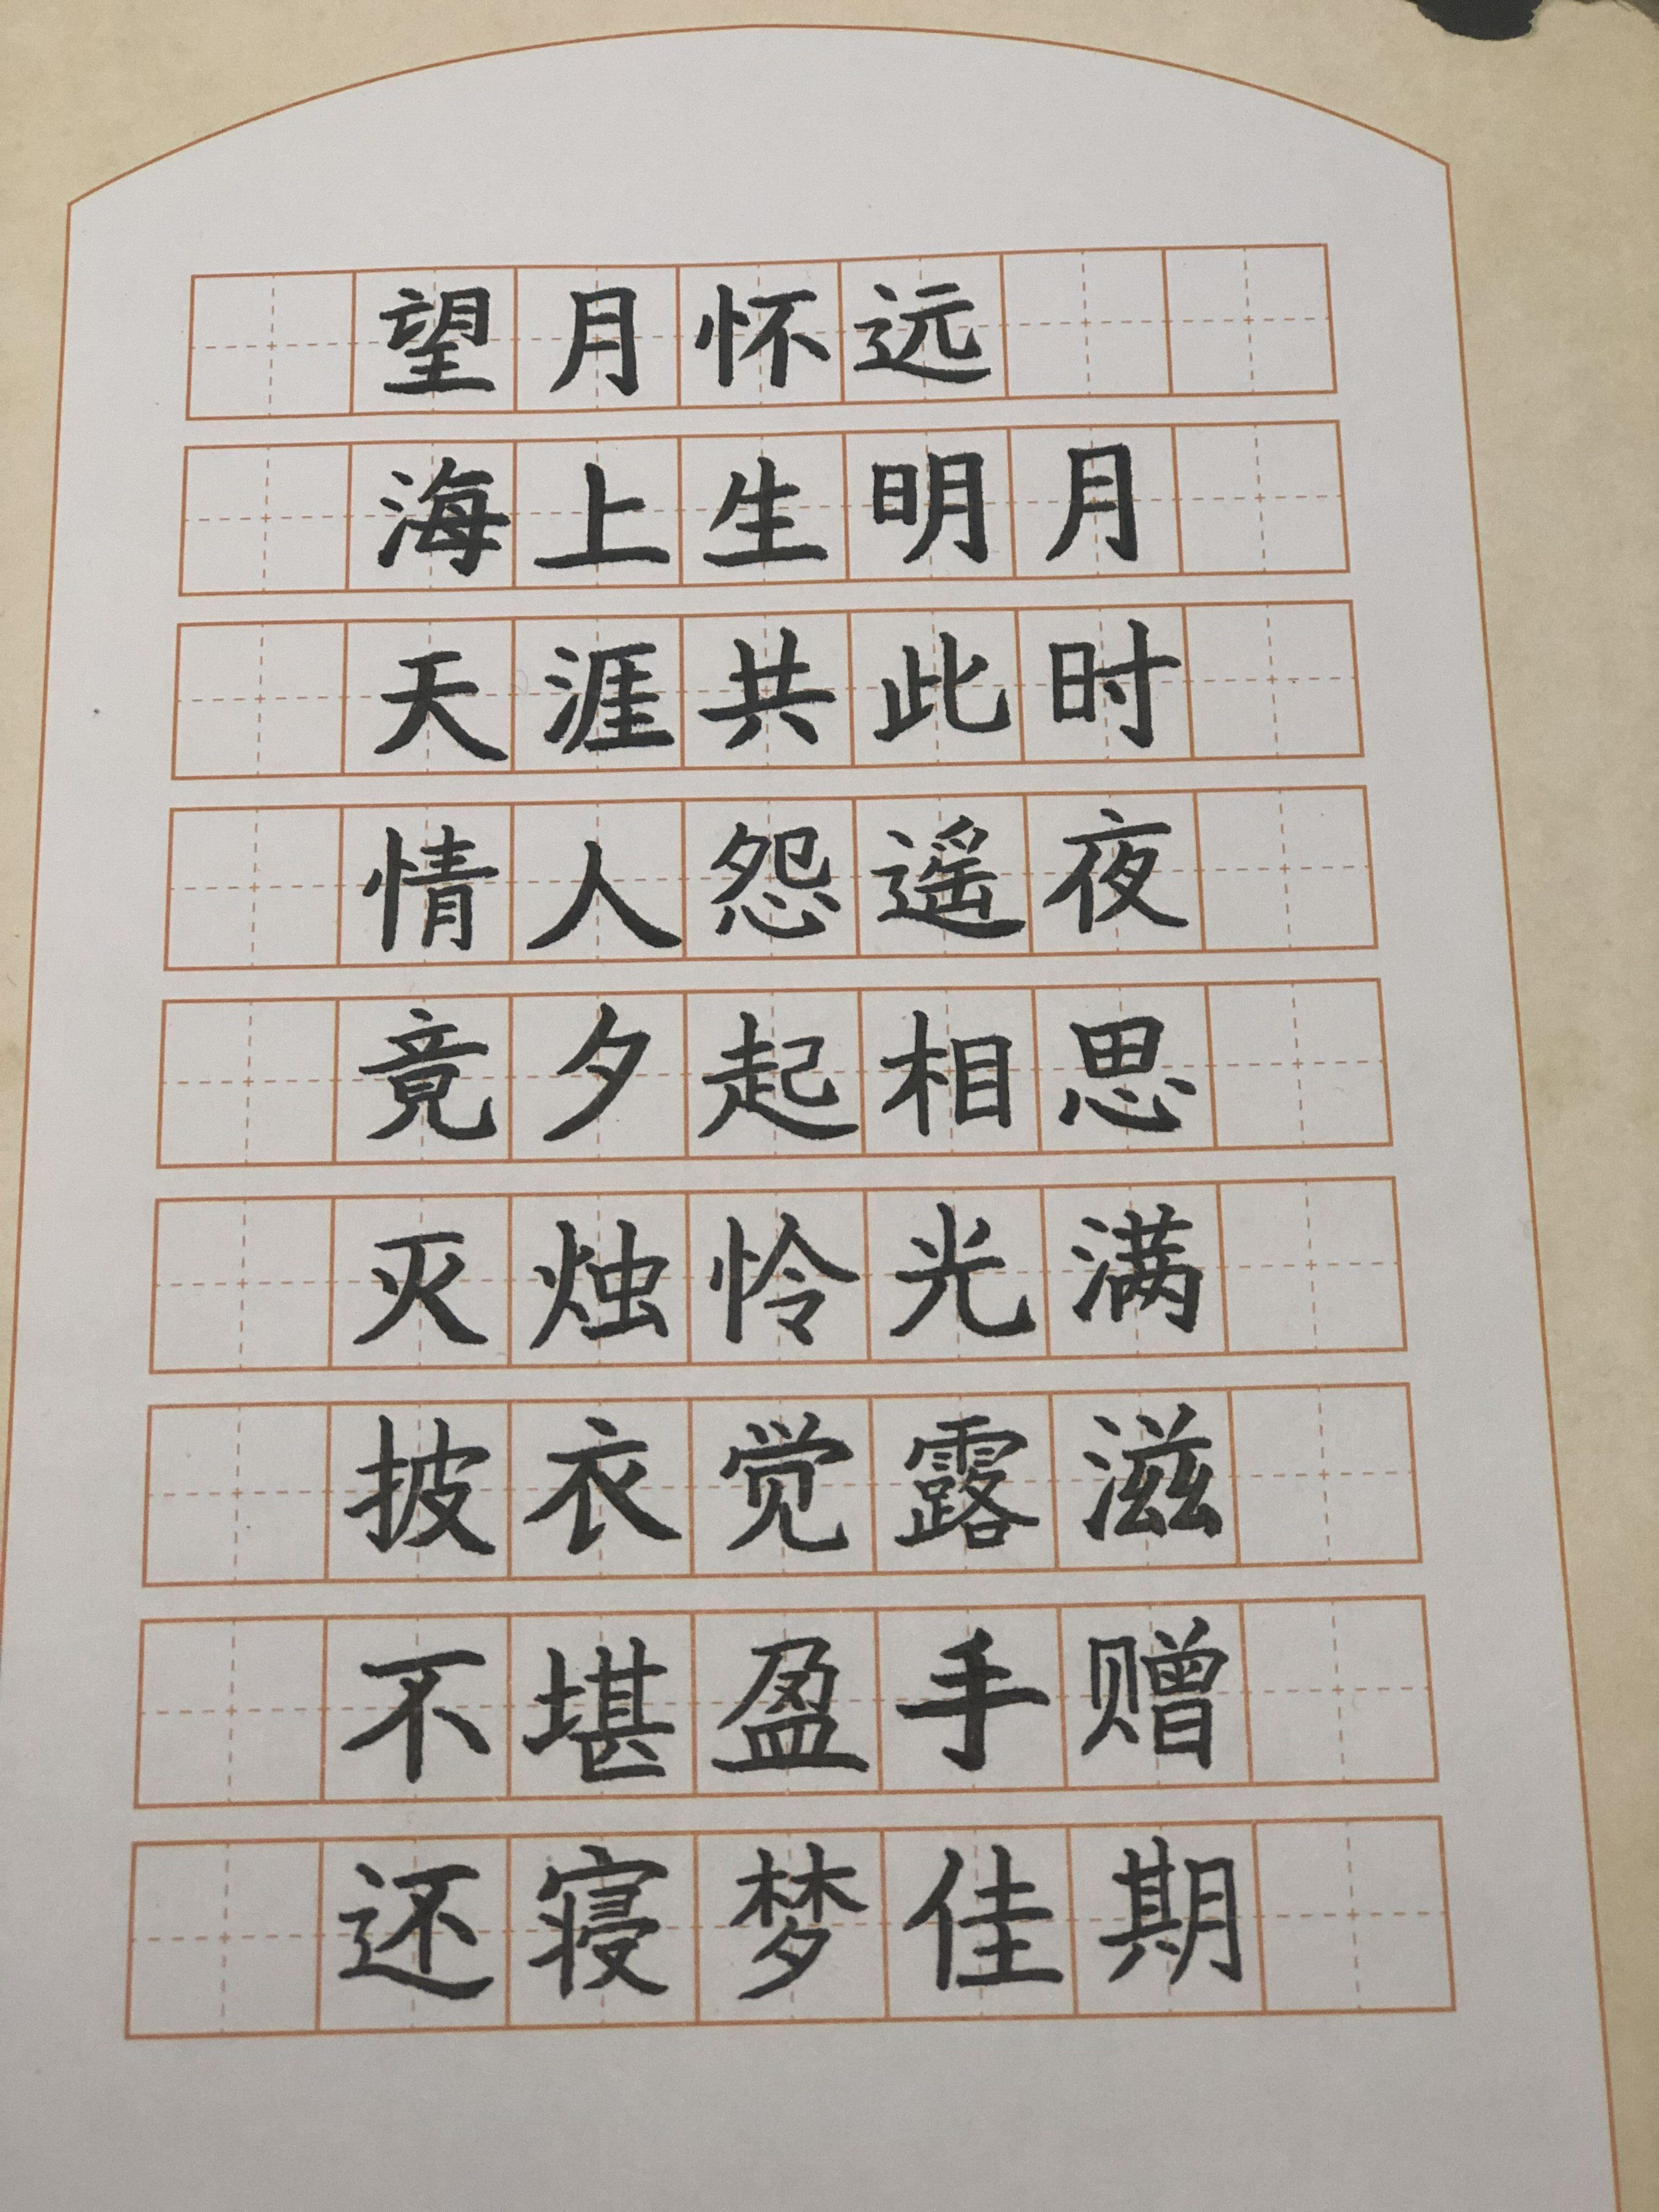 望月怀远
海上生明月
天涯共此时
情人怨遥夜
竟夕起相思
灭烛怜光满
披衣觉露滋
不堪盈手赠
还寝梦佳期